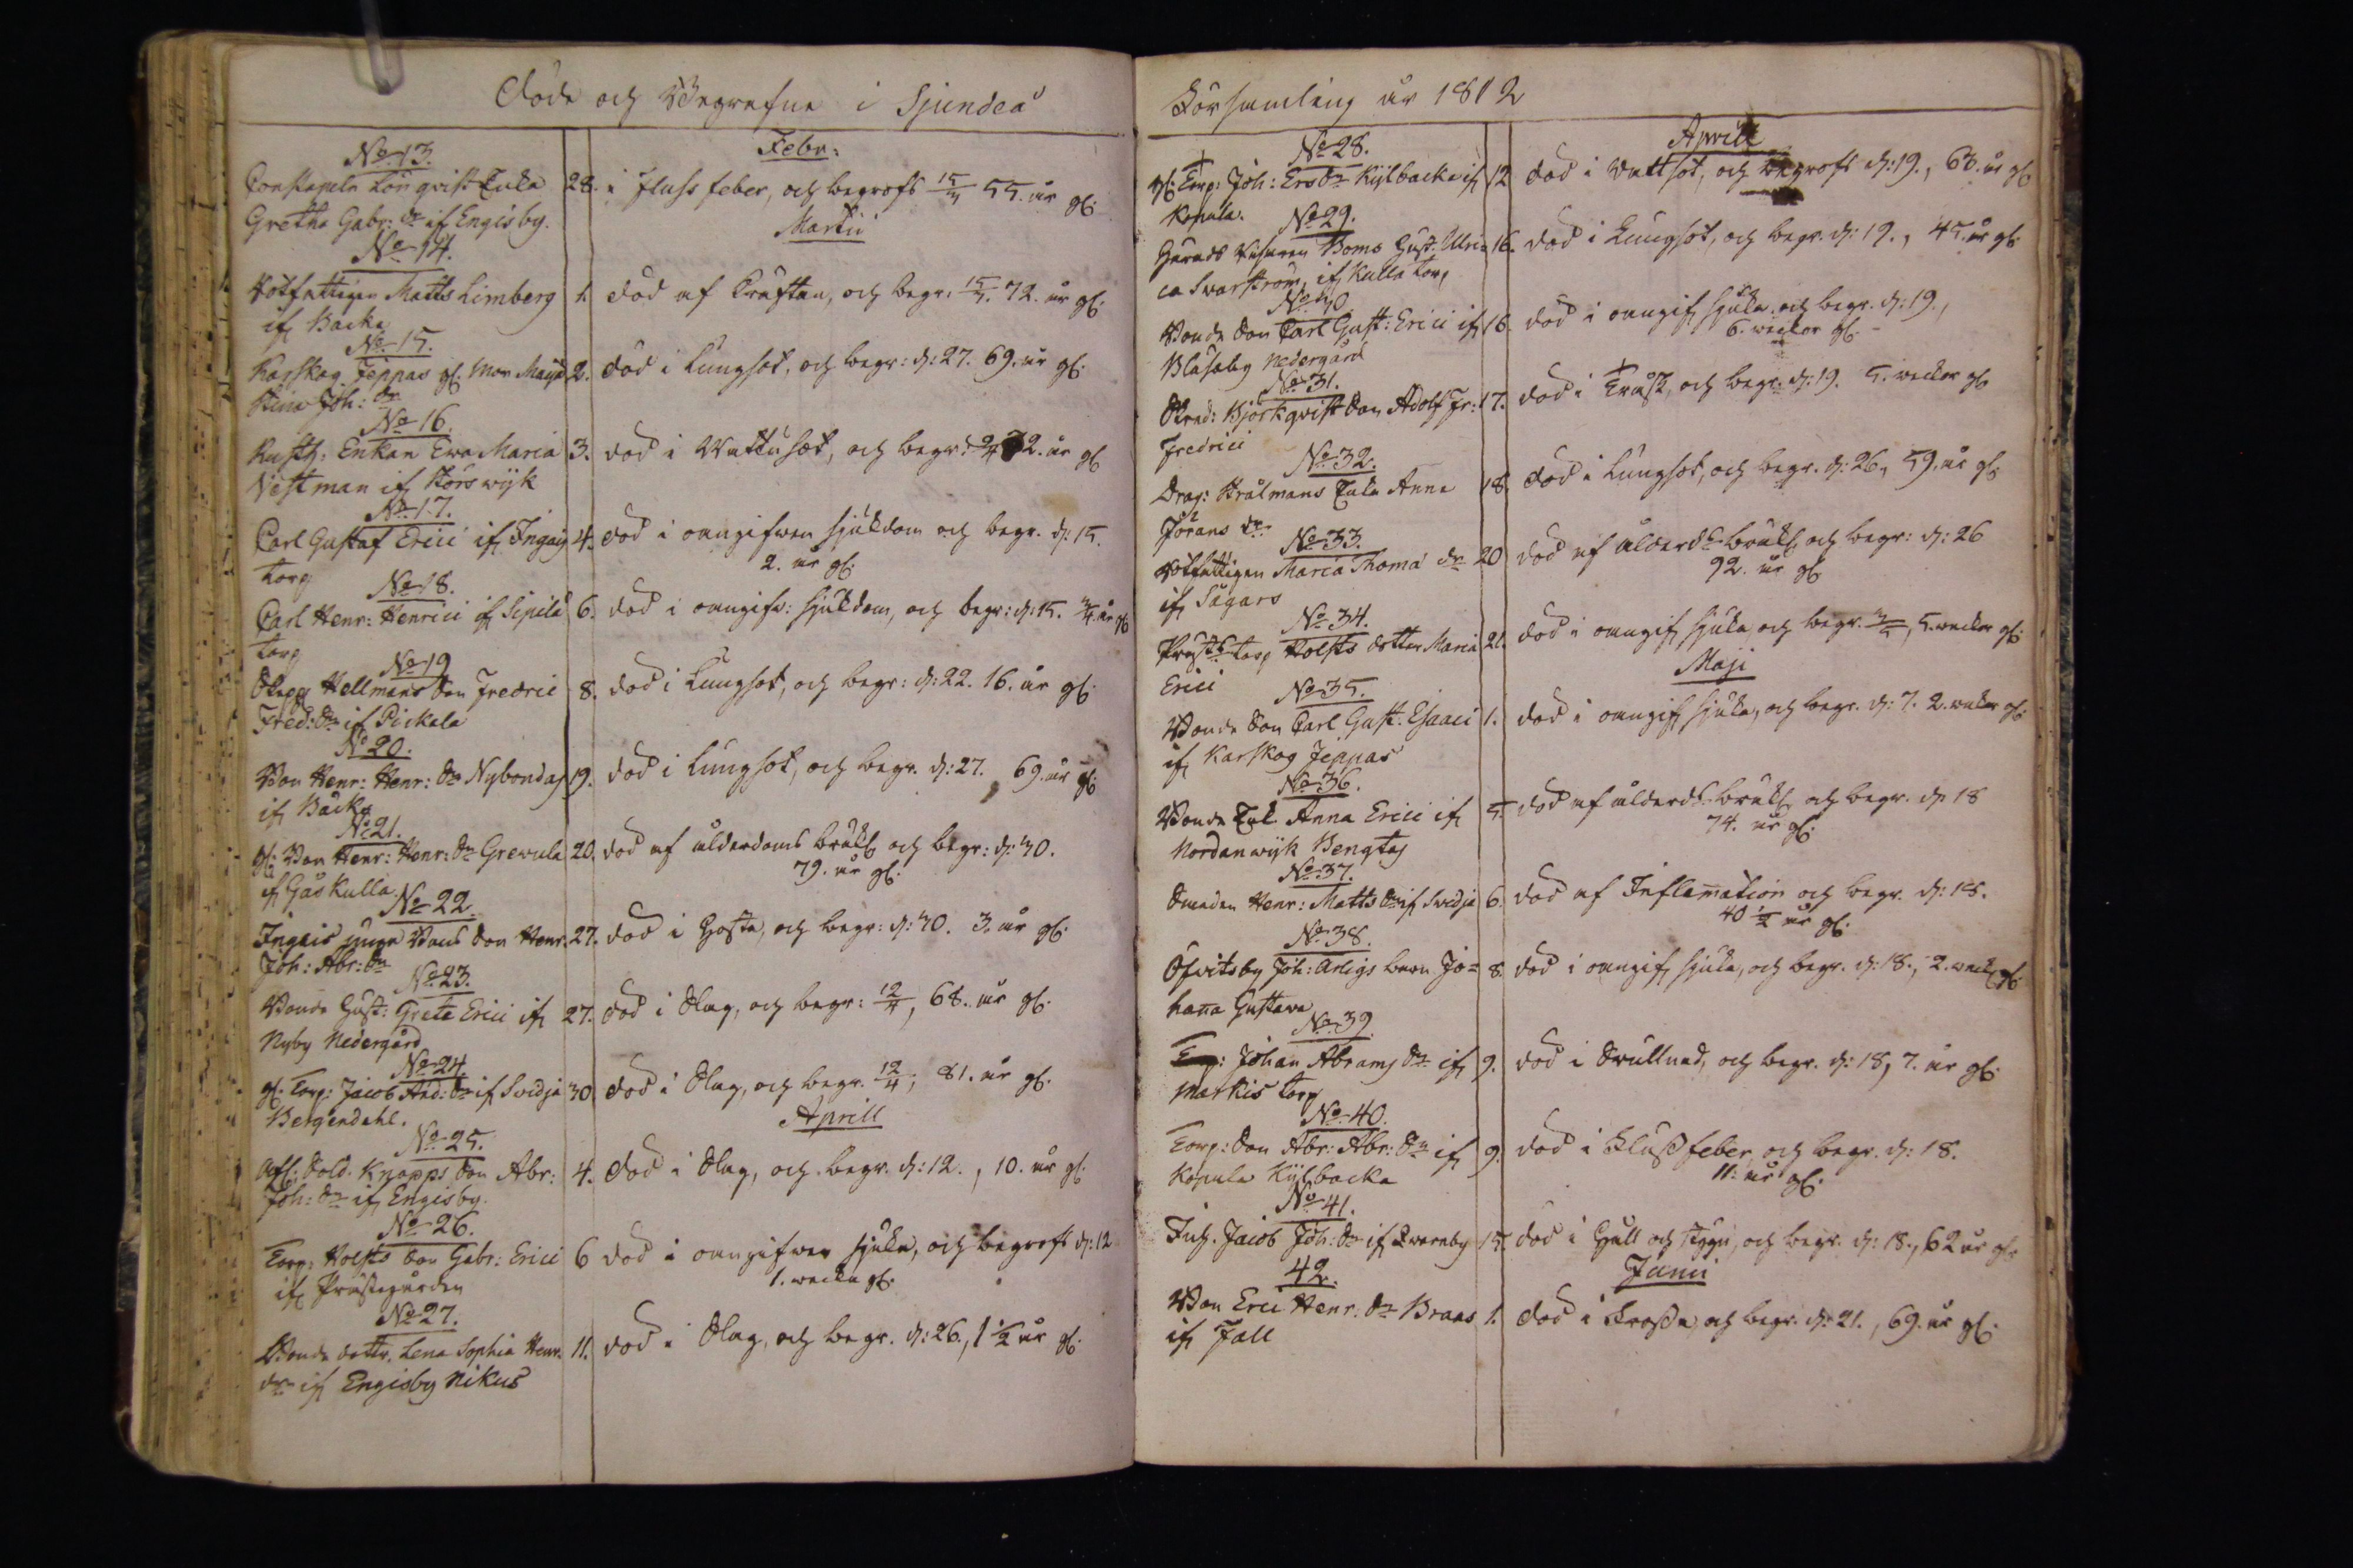 Döde och Begrafne i Sjundeå
Febr:
No 13.
Constapeln Lönqvist Enka 28. i fluss feber, och begrofs 15/3 55. år gl:
Gretha Gabr: dr if Engisby.
Martii
No 14.
Rotfattigen Matts Limberg 1. död af Kräftan, och begr: 15/3. 72. år gl:
if Backa
No 15.
Karskog Jeppas gl: mor Maija 2. död i Lungsot, och begr: d: 27. 69. år gl:
Stina Joh: dr
No 16.
Rusth: Enkan Ewa Maria 3. död i Wattusot, och begr: 2. år gl:
Vestman if Störswijk
No 17.
Carl Gustaf Erici if Ingais 4. död i oangifwen sjukdom och begr. d: 15.
torp 2. år gl:
No 18.
Carl Henr: Henrici if Sipilä 6. död i oangifv: sjukdom, och begr: d: 15. 3/4. år gl:
torp
No 19
Hellmans Son Fredric 8. död i Lungsot, och begr: d: 22. 16. år gl:
Fred: Sn if Pickala
No 20.
Bon Henr: Henr: Sn Nybondas 19. död i Lungsot, och begr. d: 27. 69. år gl:
if Backa
No 21.
gl: Bon Henr: Henr: Sn Grewula 20. död af ålderdoms bräkl: och begr: d: 30.
if Gåskulla 79. år gl:
No 22.
Ingais unga Bonds Son Henr. 27. död i Hosta, och begr: d: 30. 3. år gl:
Joh: Abr: Sn
No 23.
Bonde Gust: Greta Erici if 27. död i Slag, och begr: 12/4, 68. år gl:
Nyby Nedergård
No 24.
gl: Torp: Jacob And: Sn if Svidja 30. död i Slag, och begr. 12/4, 81. år gl:
Bergendahl.
Aprill
No 25.
Afsk: Sold. Knapps Son Abr: 4. död i Slag, och begr. d: 12., 10. år gl:
Joh: Sn if Engisby.
No 26.
Torp: Holsts Son Gabr: Erici 6 död i oangifwen sjuka, och begrofs d: 12
if Prästegården 1. wecka gl:
No 27.
Bonde dottr. Lena Sophia Henr. 11. död i Slag, och begr. d: 26., 1 1/2 år gl:
dr if Engisby Nikus
Församling år 1812
Aprill
No 28.
gl: Torp: Joh: Ers Sn Kylbacka if 12 död i Wattsot, och begrofs d: 19., 63. år gl:
Kopula.
No 29.
Gust: Ulri 16. död i Lungsot, och begr. d: 19., 45. år gl:
ca Svarström, if Kulla torp
No 30
Bonde Son Carl Gust: Erici if 16. död i oangif: sjuka, och begr. d: 19.,
Blåsaby Nedergård 6. weckor gl:
No 31.
Björkqvist Son Adolf Fr: 17. död i Tråsk, och begr. d: 19. 5. weckor gl:
Fredrici
No 32.
Drag: Strålmans Enka Anna 18. död i Lungsot, och begr. d: 26, 59. år gl:
Jörans dr
No 33.
Rotfattigen Maria Thoma dr 20 död af ålderds bräkl: och begr: d: 26
if Sågars 92. år gl:
No 34.
Prästg: torp Holsts dotter Maria 21. död i oangif: sjuka, och begr. 3/5, 5. weckor gl:
Erici
Maji
No 35.
Bonde Son Carl Gust: Esaaci 1. död i oangif: sjuka, och begr. d: 7. 2. weckor gl:
if Karskog Jeppas
No 36.
Bonde Enk. Anna Erici if 5. död af ålderds bräkl: och begr. d: 18
Nordanwijk Bengtas 74. år gl:
No 37.
Smeden Henr: Matts Sn if Svidja 6. död af Inflamation och begr. d: 18.
40 1/2 år gl:
No 38.
Öfvitsby Joh: Arligs barn Jo= 8. död i oangif: sjuka, och begr. d: 18., 2. weck: gl:
hana Gustava
No 39
Johan Abrams Sn if 9. död i Swullnad, och begr. d: 18, 7. år gl:
Markis torp
No 40.
Torp: Son Abr: Abr: Sn if 9. död i Flussfeber, och begr. d: 18.
Kopula Kylbacka 11: år gl:
No 41.
Jacob Joh: Sn if Qwarnby 15. död i Håll och stygn, och begr. d: 18., 62 år gl:
Junii
42.
Bon Eric Henr: Sn Braas 1. död i Frossa, och begr. d: 21., 69. år gl:
if Fall